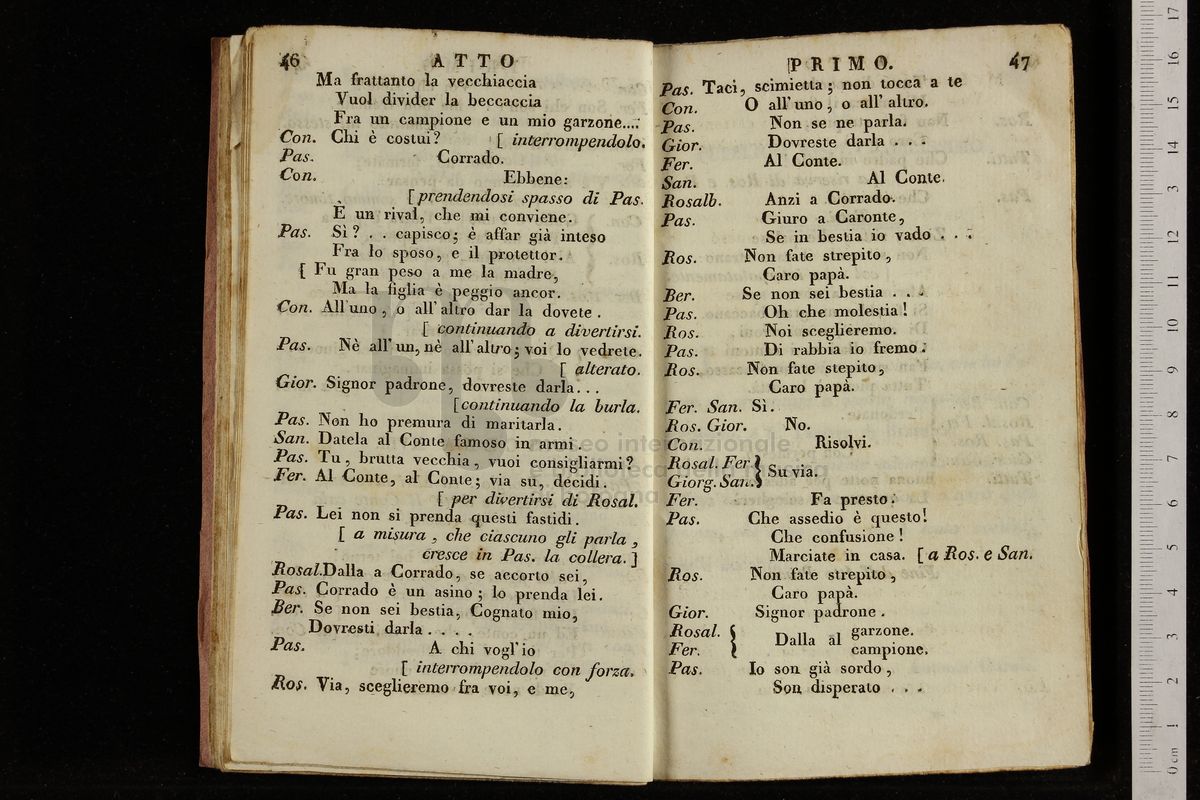 46 ATTO
Ma frattanto la vecchiaccia
Vuol divider la beccaccia
Fra un campione e un mio garzone....
Con. Chi è costui? [ interrompendolo.
Pas. Corrado.
Con. Ebbene:
[ prendendosi spasso di Pas.
È un rival, che mi conviene.
Pas. Sì? . . capisco; è affar già inteso
Fra lo sposo, e il protettor.
{ Fu gran peso a me la madre,
Ma la figlia è peggio ancor.
Con. All'uno, o all'altro dar la dovete.
[ continuando a divertirsi.
Pas. Nè all'un, nè all'altro; voi lo vedrete.
[ alterato.
Gior. Signor padrone, dovreste darla...
[ continuando la burla.
Pas. Non ho premura di maritarla.
San. Datela al Conte famoso in armi.
Pas. Tu, brutta vecchia, vuoi consigliarmi?
Fer. Al Conte, al Conte; via su, decidi.
[ per divertirsi di Rosal.
Pas. Lei non si prenda questi fastidi.
[ a misura, che ciascuno gli parla,
cresce in Pas. la collera. ]
Rosal. Dalla a Corrado, se accorto sei,
Pas. Corrado è un asino; lo prenda lei.
Ber. Se non sei bestia, Cognato mio,
Dovresti darla . . . .
Pas. A chi vogl'io
[ interrompendolo con forza.
Ros. Via, sceglieremo fra voi, e me,
PRIMO. 47
Pas. Taci, scimietta; non tocca a te
Con. O all'uno, o all'altro.
Pas. Non se ne parla.
Gior. Dovreste darla . . .
Fer. Al Conte.
San. Al Conte.
Rosalb. Anzi a Corrado.
Pas. Giuro a Caronte,
Se in bestia io vado . . .
Ros. Non fate strepito,
Caro papà.
Ber. Se non sei bestia . . .
Pas. Oh che molestia!
Ros. Noi sceglieremo.
Pas. Di rabbia io fremo.
Ros. Non fate stepito,
Caro papà.
Fer. San. Sì.
Ros. Gior. No.
Con. Risolvi.
Rosal. Fer. }
Giorg. San. } Su via.
Fer. Fa presto.
Pas. Che assedio è questo!
Che confusione!
Marciate in casa. [ a Ros. e San.
Ros. Non fate strepito,
Caro papà.
Gior. Signor padrone.
Rosal. { Dalla al garzone.
Fer. { campione.
Pas. Io son già sordo,
Son disperato . . .